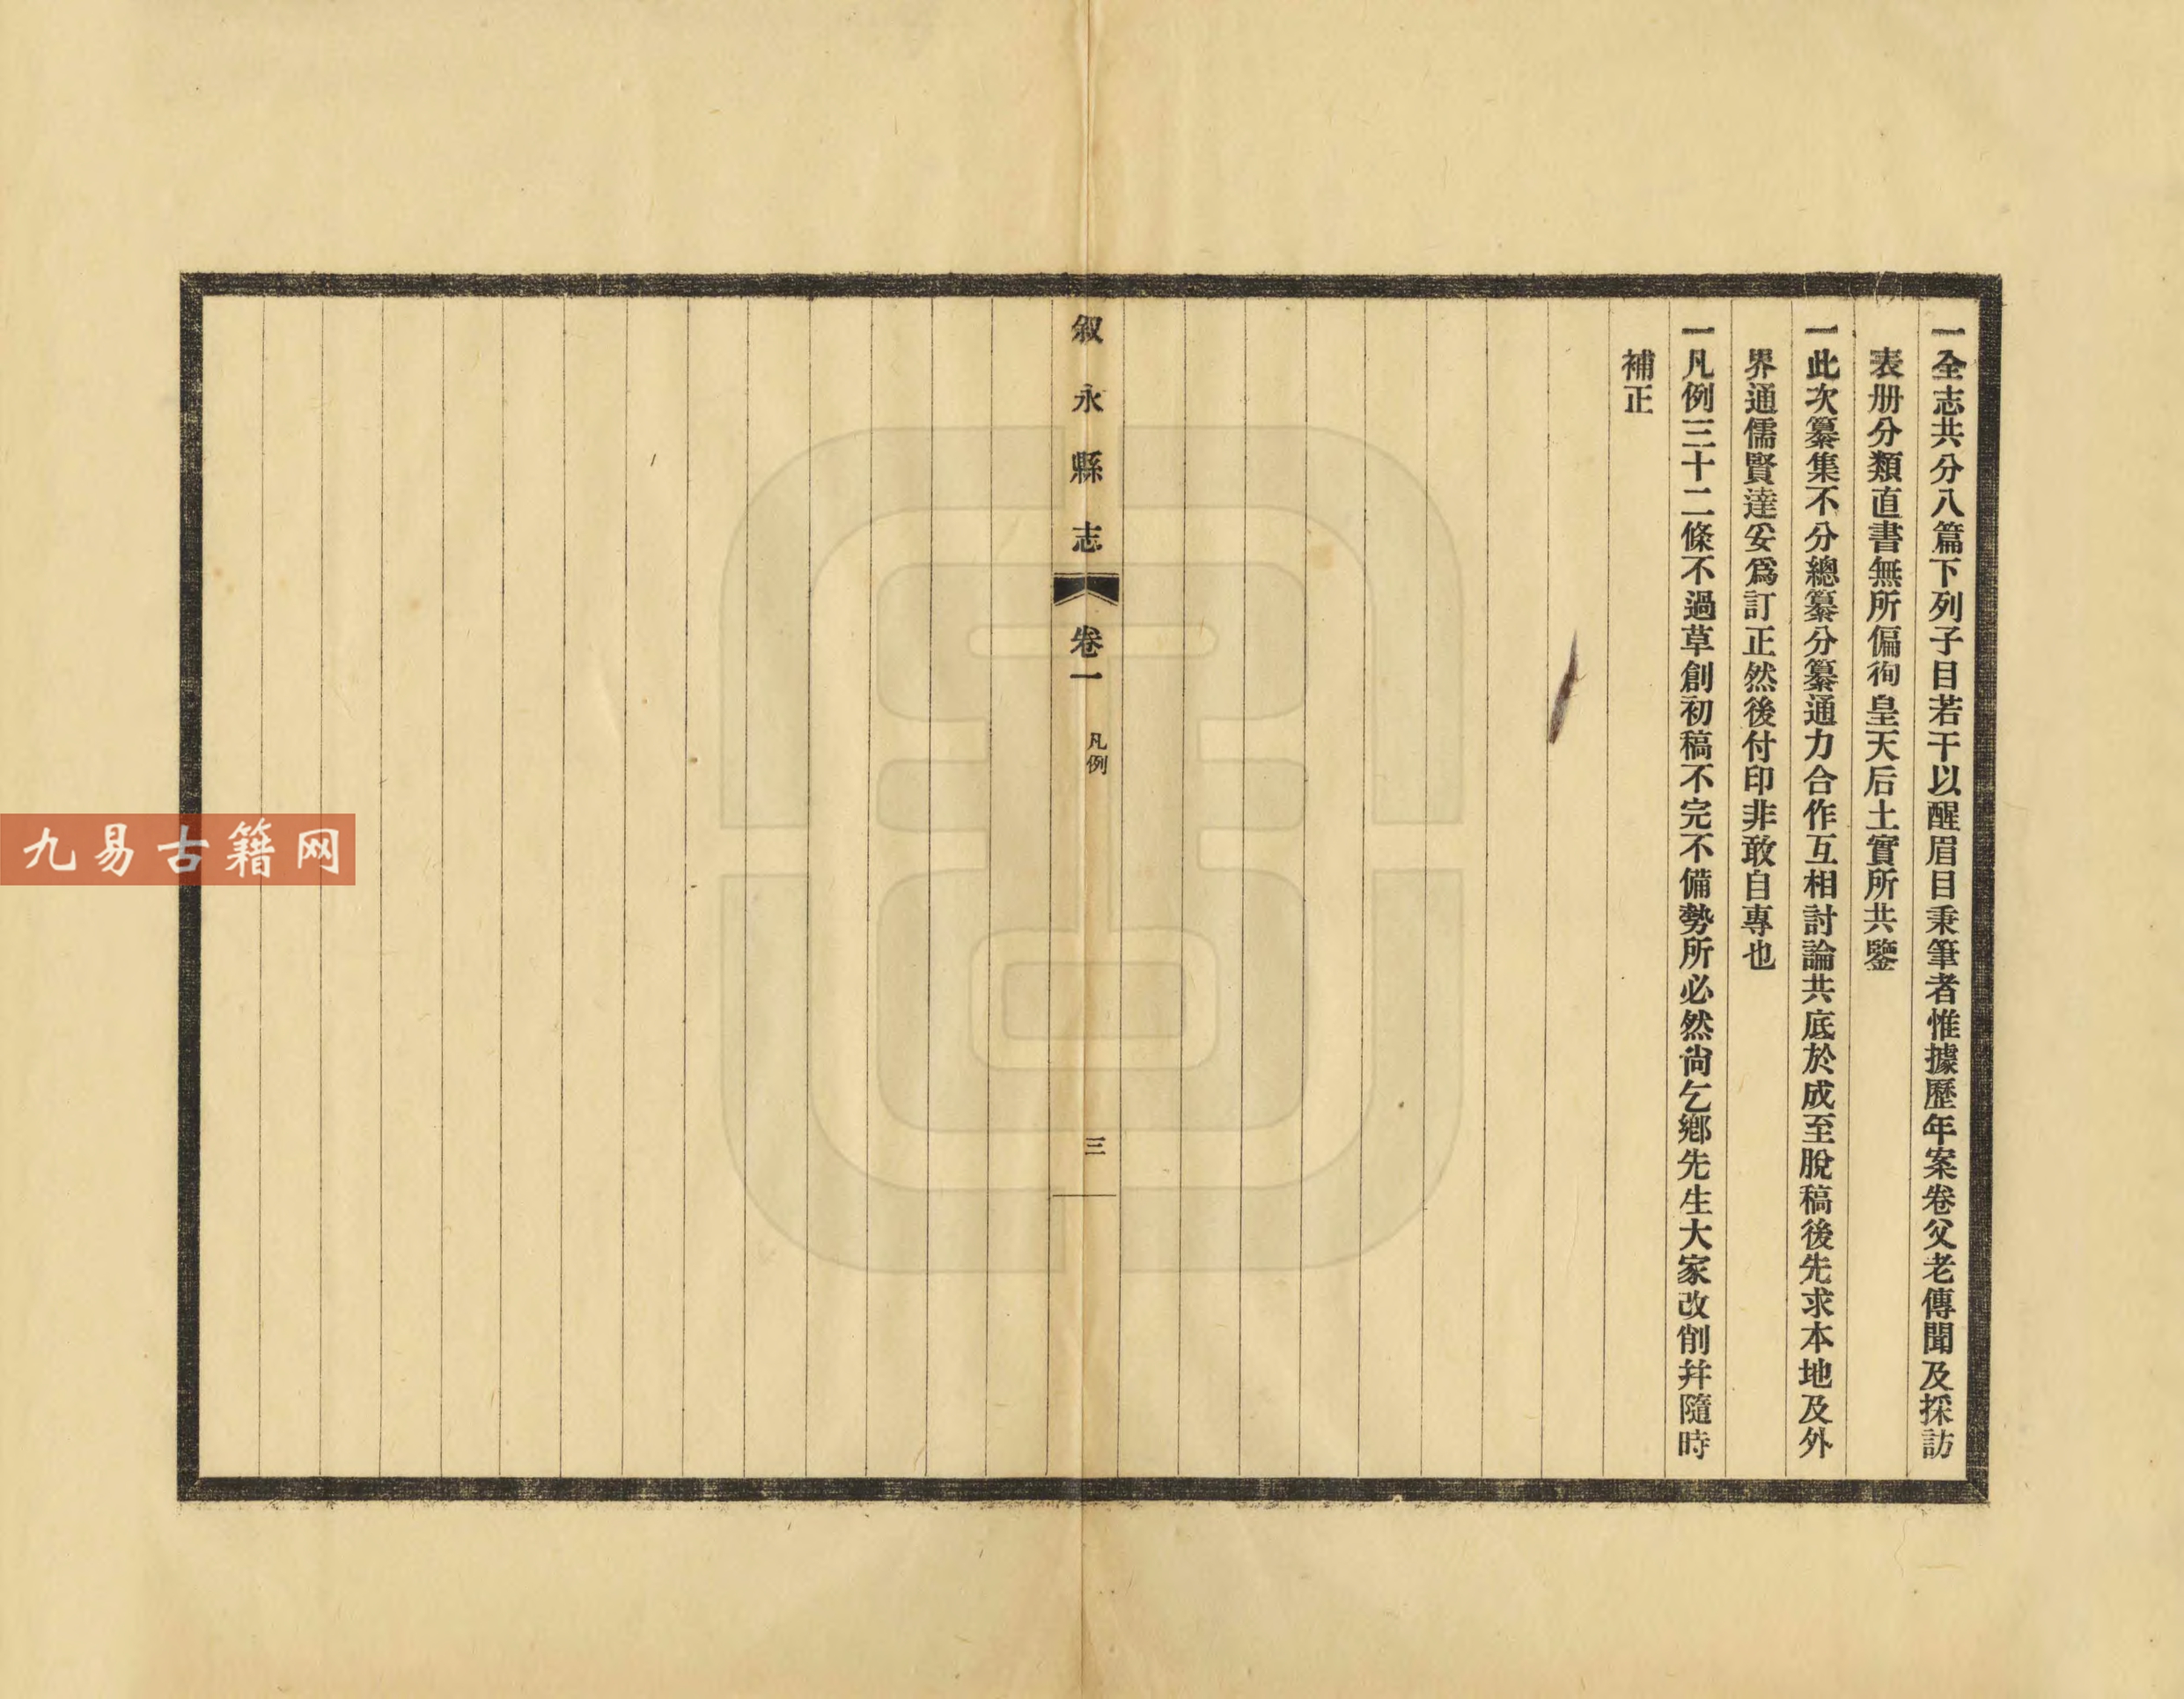 一全志共分八篇下列子目若干以醒眉目秉筆者惟據歷年案卷父老傳聞及採訪
表册分類直書無所偏徇皇天后土實所共鑒
一此次纂集不分總纂分纂通力合作互相討論共底於成至脫稿後先求本地及外
界通儒賢達妥爲訂正然後付印非敢自專也
一凡例三十二條不過草創初稿不完不備勢所必然尙乞鄕先生大家改削幷隨時
補正
叙永縣志 卷一 凡例 三
九易古籍网